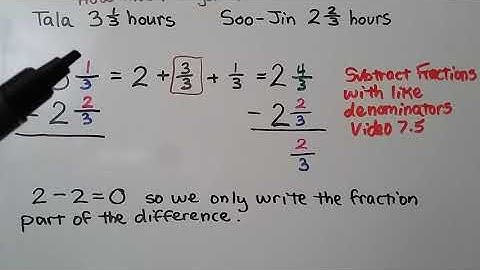 Tala 3 1/3 hours Soo-Jin 2 2/3 hours
1/3 = 2 + 3/3 + 1/3 = 2 4/3
- 2 2/3 - 2 2/3
2/3
Subtract Fractions
with like
denominators
Video 7.5
2 - 2 = 0 so we only write the fraction
part of the difference.